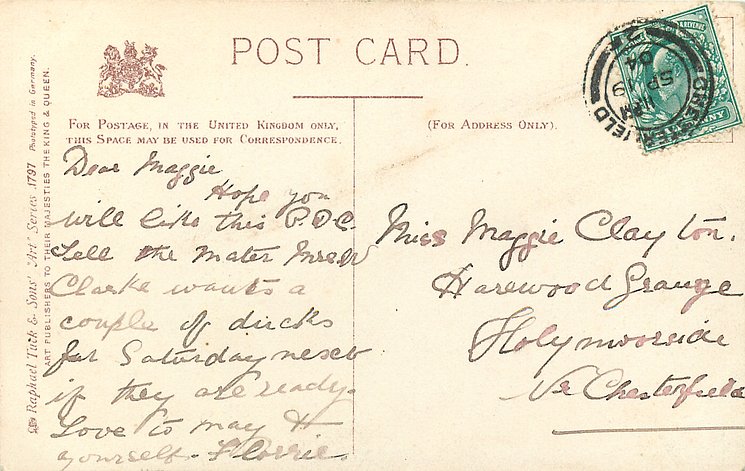 POST CARD.
FOR POSTAGE, IN THE UNITED KINGDOM ONLY,
THIS SPACE MAY BE USED FOR CORRESPONDENCE.
(FOR ADDRESS ONLY).
Raphael Tuck & Sons' "Art" Series 1797 Phototyped in Germany.
ART PUBLISHERS TO THEIR MAJESTIES THE KING & QUEEN.
Dear Maggie
Hope you
will like this P.P.C.
Tell the mater Mrs W
Clarke wants a
couple of ducks
for Saturday next
if they are ready.
Love to May &
yourself. Florrie.
Miss Maggie Clayton.
Harewood Grange
Holymoorside
Nr Chesterfield
CHESTERFIELD
SP 9
04
REVENUE
NNY